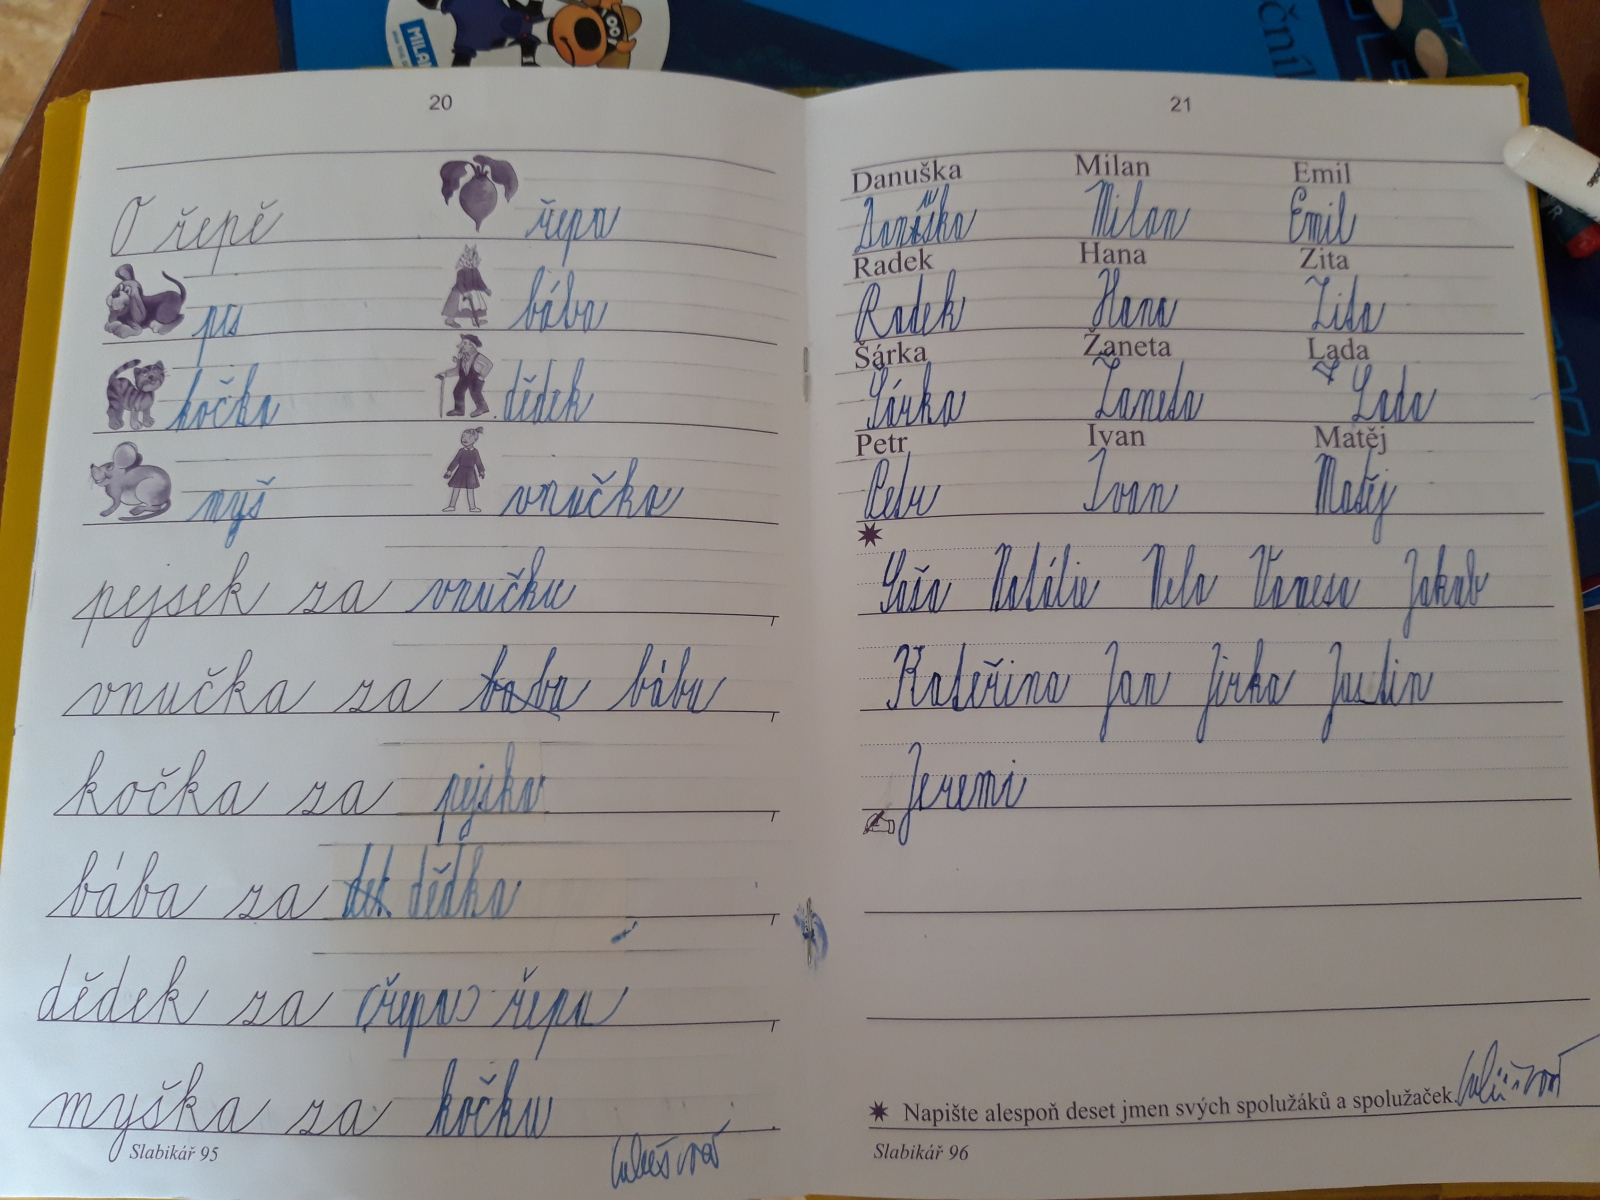 MILAN
čníl
20
O řepě řepa
pes bába
kočka dědek
myš vnučka
pejsek za vnučku
vnučka za baba bábu
kočka za pejska
bába za dek dědka
dědek za (řepa) řepu
myška za kočku
Slabikář 95
21
Danuška Milan Emil
Danuška Milan Emil
Radek Hana Zita
Radek Hana Zita
Šárka Žaneta Lada
Šárka Žaneta Lada
Petr Ivan Matěj
Petr Ivan Matěj
Saša Natálie Nela Vanesa Jakub
Kateřina Jan Jirka Justin
Jeremi
Napište alespoň deset jmen svých spolužáků a spolužaček.
Slabikář 96